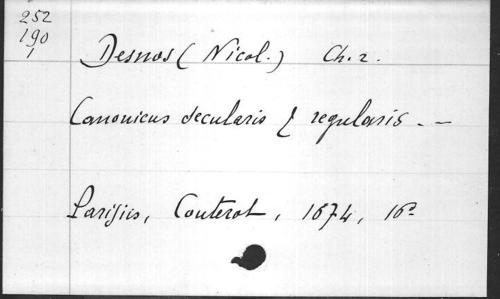 252
190
1
Desnos (Nicol.) Ch. r.
Canonicus secularis & regularis. —
Parisiis, Couterot, 1674, 16º